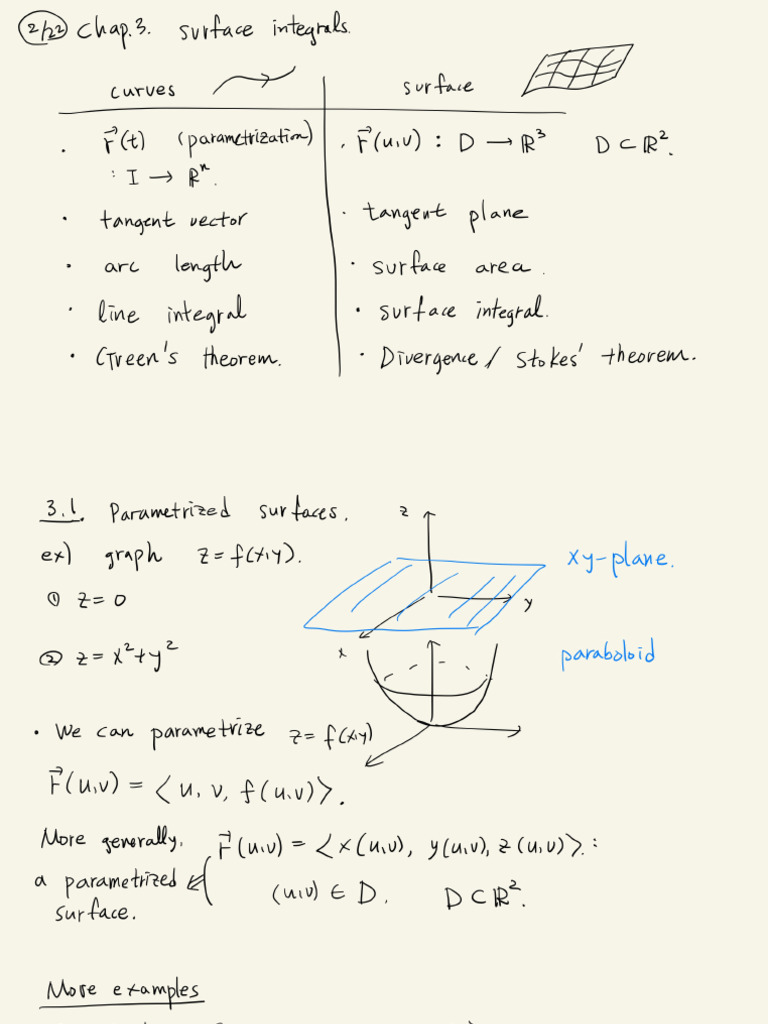 2/22 Chap.3. surface integrals.
curves surface
· r⃗(t) (parametrization) · r⃗(u,v) : D → ℝ³ D ⊂ ℝ².
: I → ℝⁿ.
· tangent vector · tangent plane
· arc length · surface area.
· line integral · surface integral.
· Green's theorem. · Divergence / Stokes' theorem.
3.1. Parametrized surfaces.
z
ex) graph z = f(x,y).
xy-plane.
① z = 0
y
x
② z = x² + y²
paraboloid
· We can parametrize z = f(x,y)
r⃗(u,v) = <u, v, f(u,v)>.
More generally, r⃗(u,v) = <x(u,v), y(u,v), z(u,v)>. :
a parametrized (u,v) ∈ D. D ⊂ ℝ².
surface.
More examples